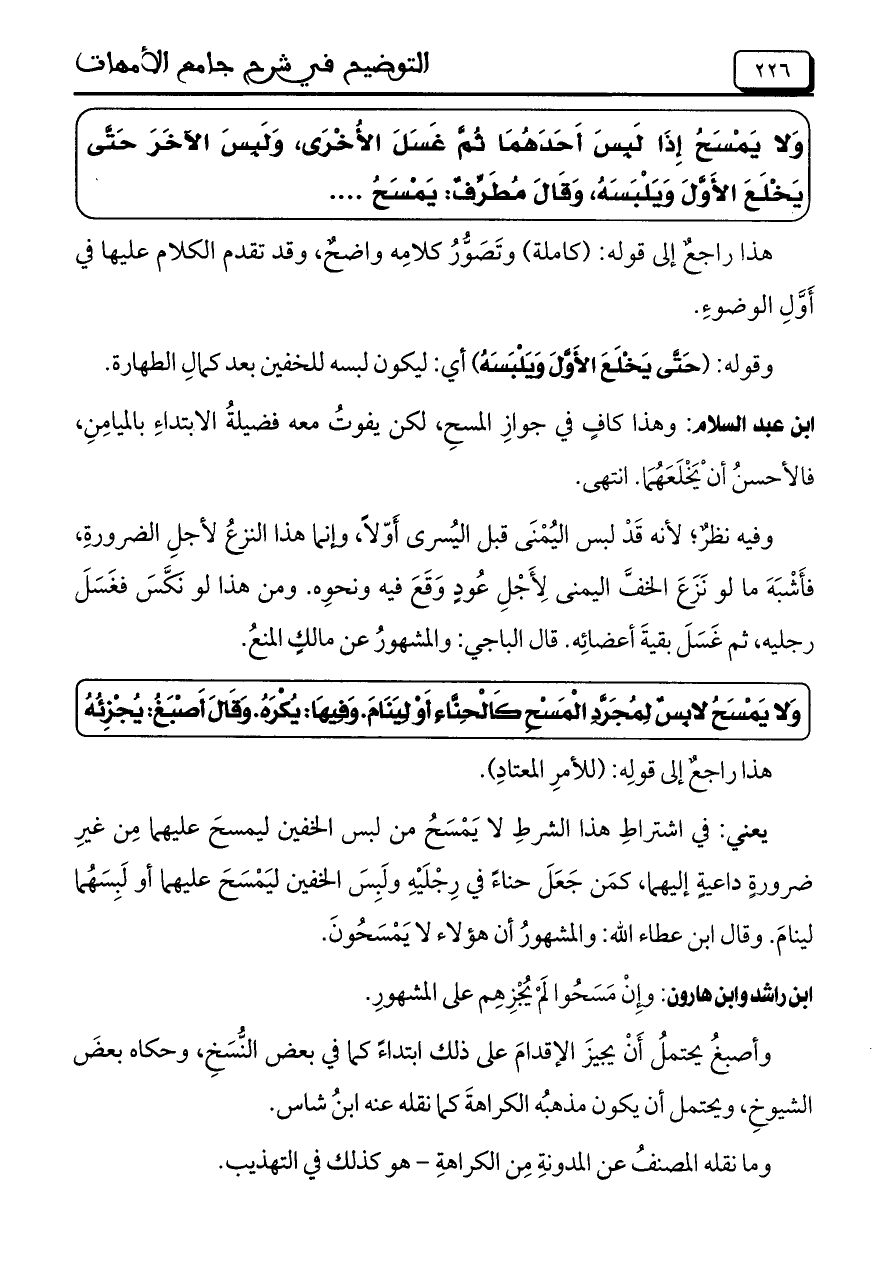 ٢٢٦
التوضيح في شرح جامع الأمهات
وَلا يَمْسَحُ إِذَا لَبِسَ أَحَدَهُمَا ثُمَّ غَسَلَ الأُخْرَى، وَلَبِسَ الآخَرَ حَتَّى
يَخْلَعَ الأَوَّلَ وَيَلْبَسَهُ، وَقَالَ مُطَرِّفٌ: يَمْسَحُ ....
هذا راجعٌ إلى قوله: (كاملة) وتَصَوُّرُ كلامِه واضحٌ، وقد تقدم الكلام عليها في
أَوَّلِ الوضوءِ.
وقوله: (حَتَّى يَخْلَعَ الأَوَّلَ وَيَلْبَسَهُ) أي: ليكون لبسه للخفين بعد كمالِ الطهارة.
ابن عبد السلام: وهذا كافٍ في جوازِ المسحِ، لكن يفوتُ معه فضيلةُ الابتداءِ بالميامنِ،
فالأحسنُ أن يَخْلَعَهُمَا. انتهى.
وفيه نظرٌ؛ لأنه قَدْ لبس اليُمْنَى قبل اليُسرى أَوّلاً، وإنما هذا النزعُ لأجلِ الضرورةِ،
فأَشْبَهَ ما لو نَزَعَ الخفَّ اليمنى لِأَجْلِ عُودٍ وَقَعَ فيه ونحوِه. ومن هذا لو نَكَّسَ فغَسَلَ
رجليه، ثم غَسَلَ بقيةَ أعضائِه. قال الباجي: والمشهورُ عن مالكٍ المنعُ.
وَلا يَمْسَحُ لابِسٌ لِمُجَرَّدِ الْمَسْحِ كَالْحِنَّاءِ أَوْ لِيَنَامَ. وَفِيهَا: يُكْرَهُ. وَقَالَ أَصْبَغُ: يُجْزِئُهُ
هذا راجعٌ إلى قولِه: (للأمرِ المعتادِ).
يعني: في اشتراطِ هذا الشرطِ لا يَمْسَحُ من لبس الخفين ليمسحَ عليهما مِن غيرِ
ضرورةٍ داعيةٍ إليهما، كمَن جَعَلَ حناءً في رِجْلَيْهِ ولَبِسَ الخفين ليَمْسَحَ عليهما أو لَبِسَهُما
لينامَ. وقال ابن عطاء الله: والمشهورُ أن هؤلاء لا يَمْسَحُونَ.
ابن راشد وابن هارون: وإِنْ مَسَحُوا لَمْ يُجْزِهِم على المشهورِ.
وأصبغُ يحتملُ أَنْ يجيزَ الإقدامَ على ذلك ابتداءً كما في بعض النُّسَخِ، وحكاه بعضَ
الشيوخِ، ويحتمل أن يكون مذهبُه الكراهةَ كما نقله عنه ابنُ شاس.
وما نقله المصنفُ عن المدونةِ مِن الكراهةِ – هو كذلك في التهذيب.